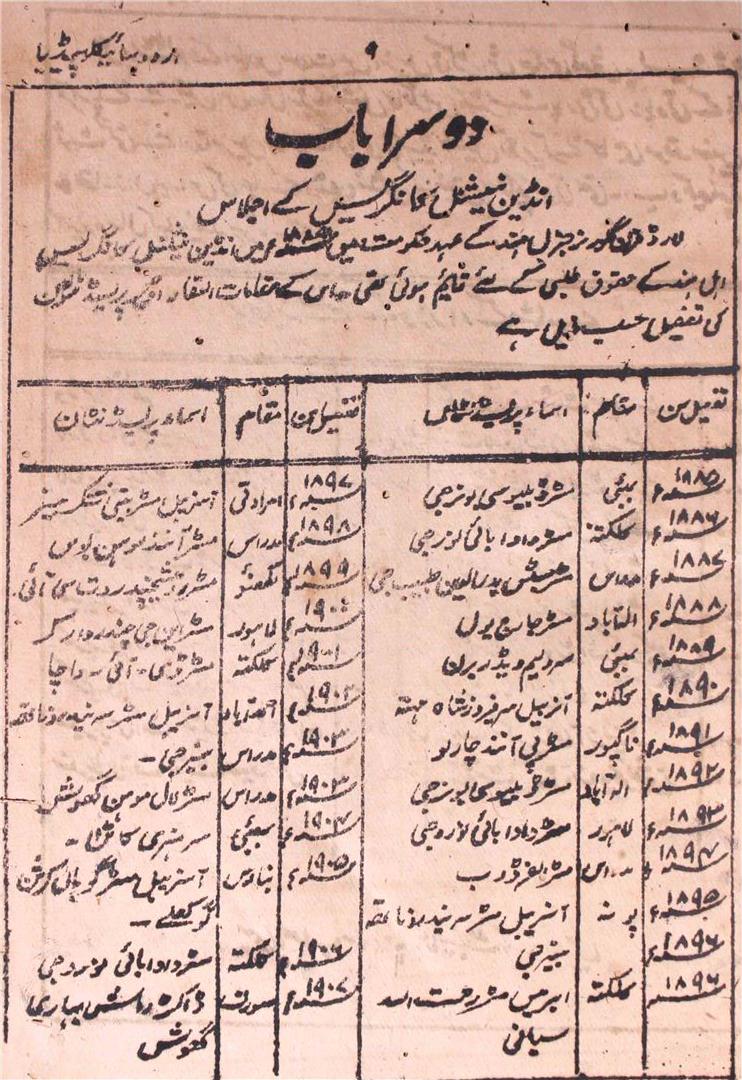 اردو سائیکلوپیڈیا
۹
دوسرا باب
انڈین نیشنل کانگریس کے اجلاس
لارڈ ڈفرن گورنر جنرل ہند کے عہد حکومت میں ۱۸۸۵ء میں انڈین نیشنل کانگریس
اہل ہند کے حقوق طلبی کے لئے قایم ہوئی تھی۔ اس کے مقامات انعقاد اور پریسیڈنٹوں
کی تفصیل حسب ذیل ہے
تفصیل سن مقام اسماء پریسیڈنٹان تفصیل سن مقام اسماء پریسیڈنٹان
۱۸۸۵ء بمبئی مسٹر ڈبلیو سی بونرجی ۱۸۹۷ء امراوتی آنریبل مسٹر شنکر
۱۸۸۶ء کلکتہ مسٹر دادا بھائی نورجی ۱۸۹۸ء مدراس مسٹر آنند موہن بوس
۱۸۸۷ء مدراس جسٹس بدرالدین طیب جی ۱۸۹۹ء لکھنؤ مسٹر دت سی آئی۔
۱۸۸۸ء الہ آباد مسٹر جارج یول ۱۹۰۰ء لاہور مسٹر این جی چندر وارکر
۱۸۸۹ء بمبئی سر ولیم ویڈربرن ۱۹۰۱ء کلکتہ مسٹر ڈی۔ آئی۔ واچا
۱۸۹۰ء کلکتہ آنریبل سر فیروز شاہ مہتہ ۱۹۰۲ء احمد آباد آنریبل مسٹر سریندرو ناتھ
۱۸۹۱ء ناگپور مسٹر پی آنند چارلو ۱۹۰۳ء مدراس بینرجی۔
۱۸۹۲ء الہ آباد مسٹر ڈبلیو سی بونرجی ۱۹۰۳ء مدراس مسٹر لال موہن گھوش
۱۸۹۳ء لاہور مسٹر دادا بھائی نوروجی ۱۹۰۴ء بمبئی سر ہنری کاٹن۔
۱۸۹۴ء مدراس مسٹر الفرڈ وب ۱۹۰۵ء بنارس آنریبل مسٹر گوپال کرشن
۱۸۹۵ء پونہ آنریبل مسٹر سریندرو ناتھ گوکھلے۔
۱۸۹۶ء بینرجی ۱۹۰۶ء کلکتہ مسٹر دادا بھائی نوروجی
۱۸۹۶ء کلکتہ مسٹر رحمت اللہ ۱۹۰۷ء سورت ڈاکٹر راش بہاری
سیانی گھوش